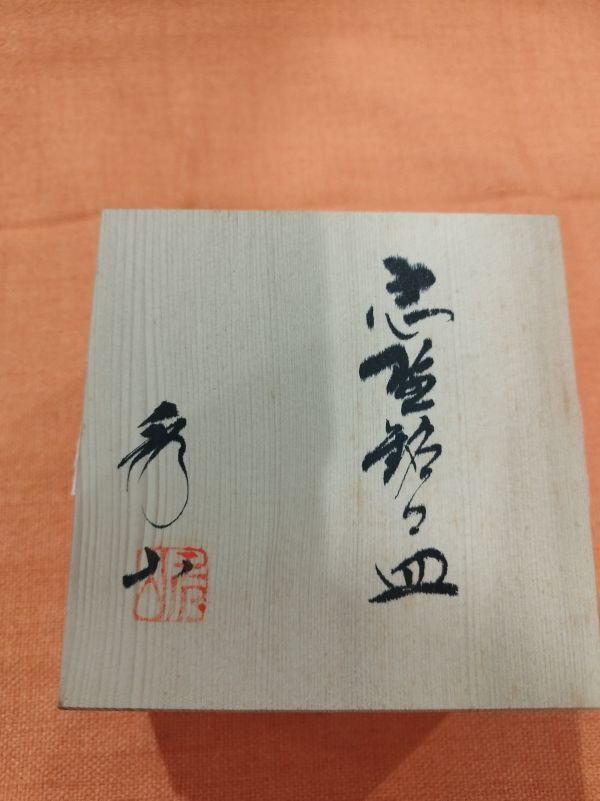 志野銘々皿
秀山